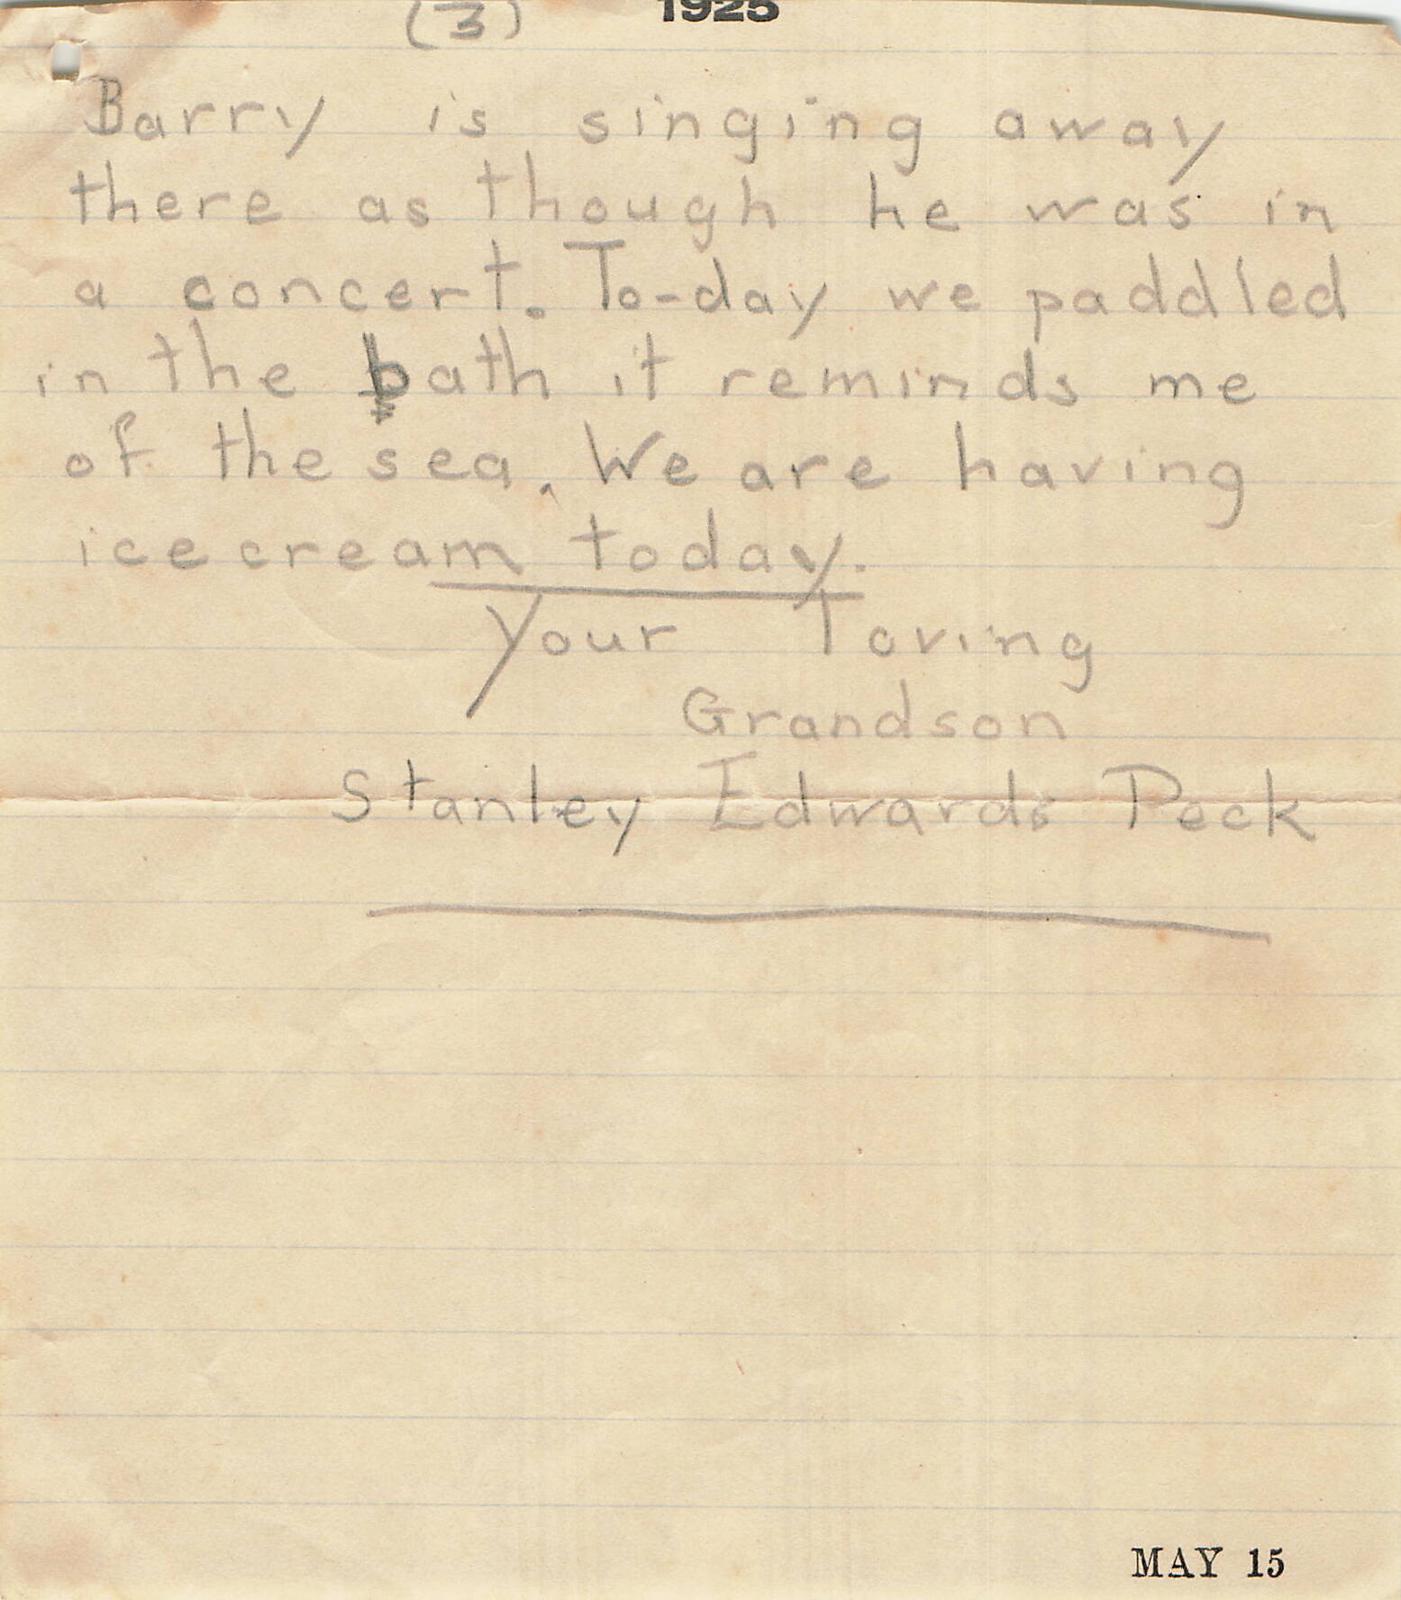 (3) 1925
Barry is singing away
there as though he was in
a concert. To-day we paddled
in the bath it reminds me
of the sea. We are having
icecream today.
Your Loving
Grandson
Stanley Edwards Peck
MAY 15